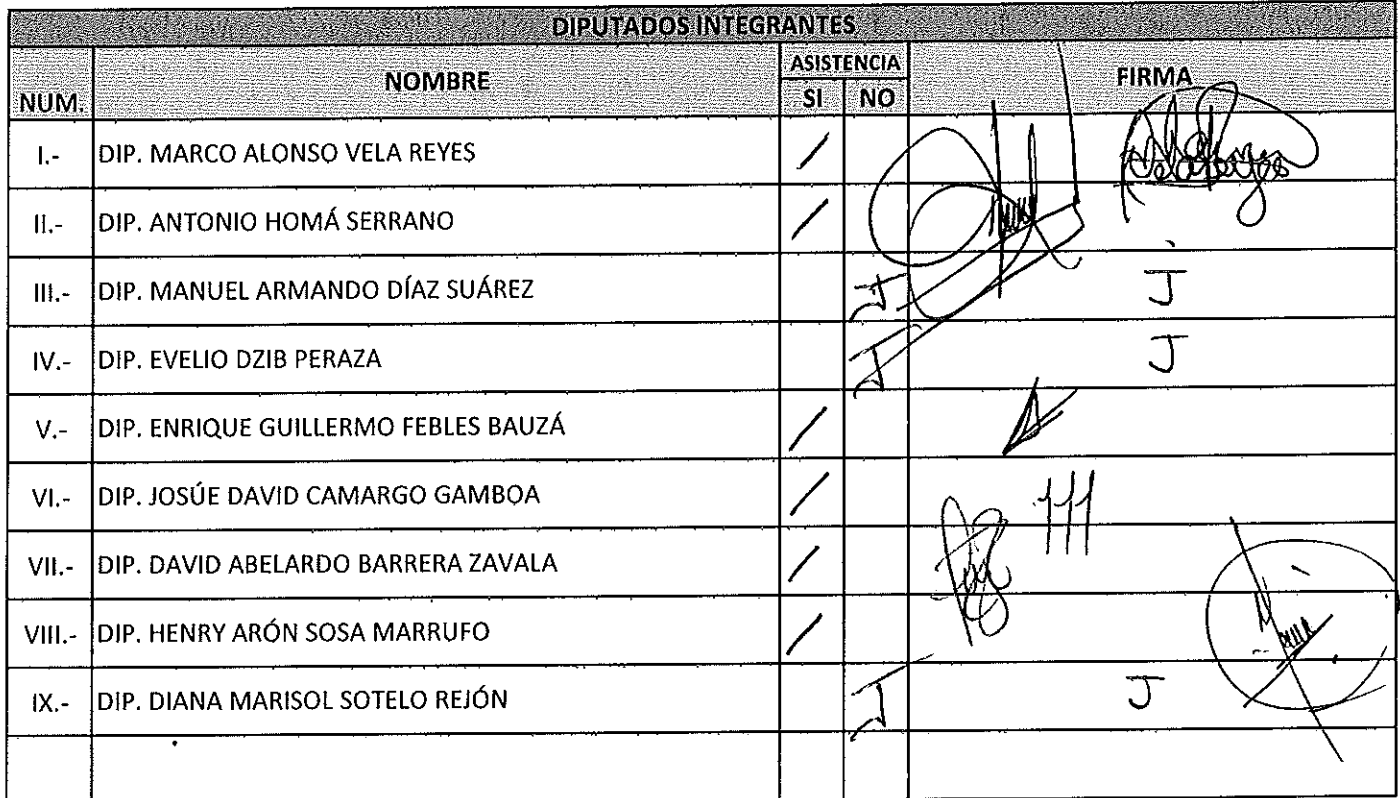 DIPUTADOS INTEGRANTES
NUM. NOMBRE ASISTENCIA FIRMA
SI NO
I.- DIP. MARCO ALONSO VELA REYES /
II.- DIP. ANTONIO HOMÁ SERRANO /
III.- DIP. MANUEL ARMANDO DÍAZ SUÁREZ J J
IV.- DIP. EVELIO DZIB PERAZA J J
V.- DIP. ENRIQUE GUILLERMO FEBLES BAUZÁ /
VI.- DIP. JOSÚE DAVID CAMARGO GAMBOA /
VII.- DIP. DAVID ABELARDO BARRERA ZAVALA /
VIII.- DIP. HENRY ARÓN SOSA MARRUFO /
IX.- DIP. DIANA MARISOL SOTELO REJÓN J J